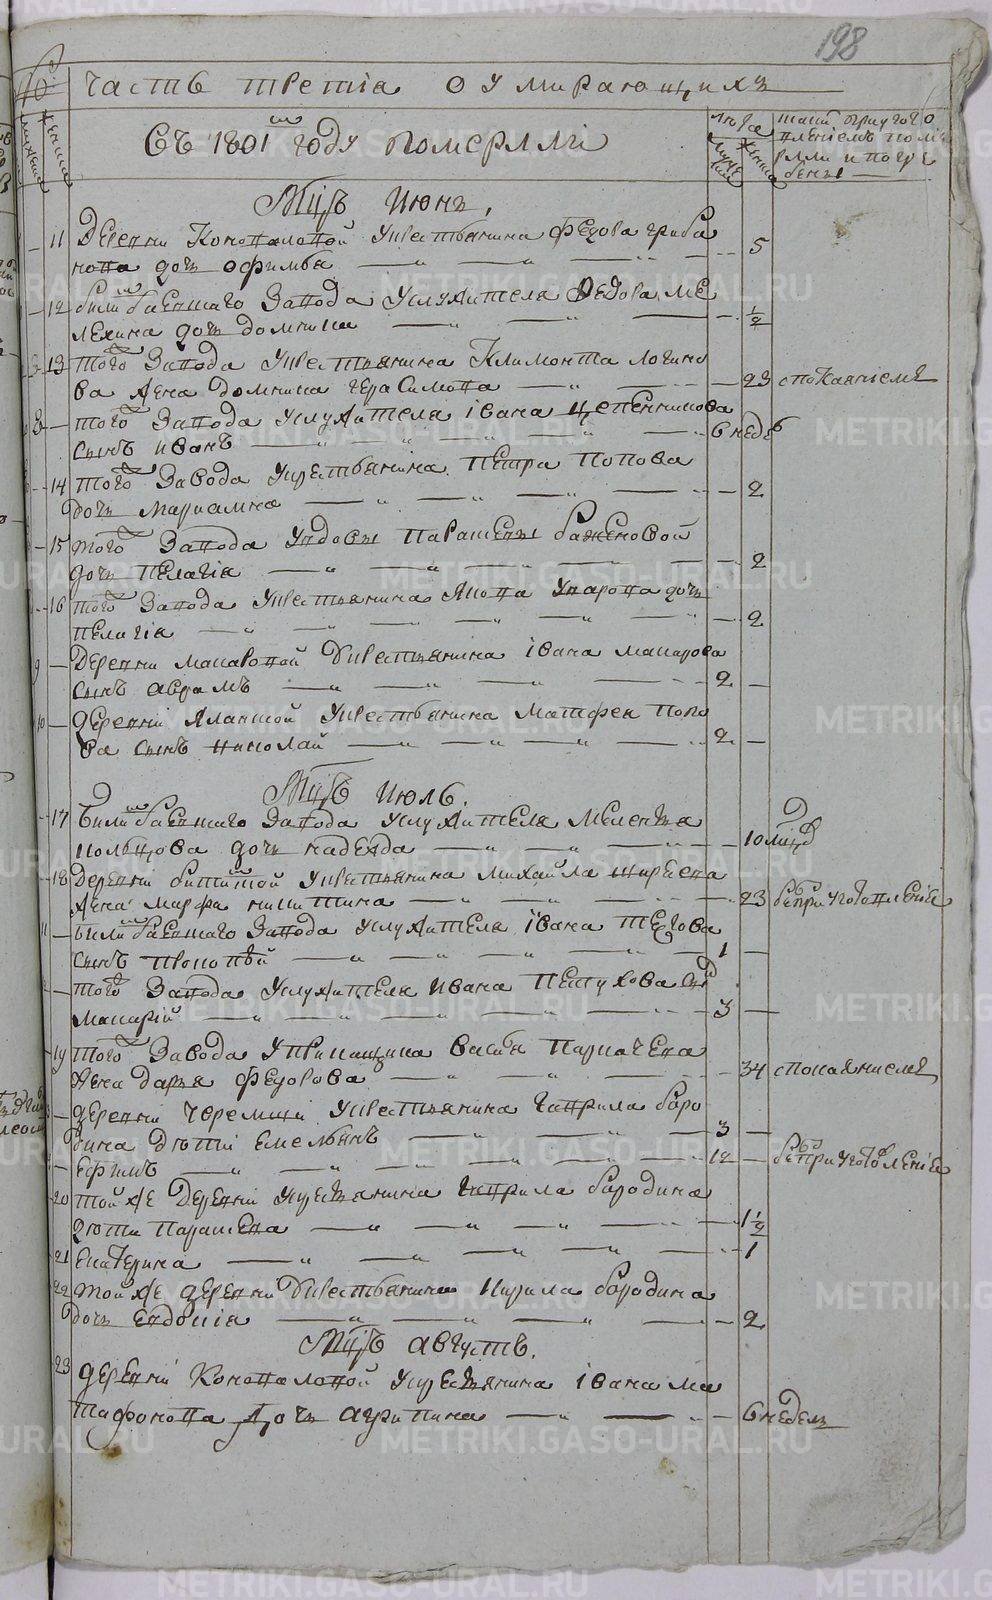 198
часть третїа о умирающихъ
съ 1801м году померлїи
лѣта
мужеска
женска
какимъ приугото
вленіемъ поме
рли и погре
бены
Мцъ июнь.
11 Деревни Коноваловой у крестьянина Федора гриба
нова дочь офимья 5
12 билимбаевшаго завода у служителя Федора ме
лехина дочь домника ½
13 того завода у крестьянина Климонта логино
ва жена домника герасимова 23 с покаяніемъ
8 того завода у служителя івана щепенникова
сынъ иванъ 6 недѣ
14 того завода у крестьянина петра попова
дочь мариамна 2
15 того завода у вдовы параскевы баженовой
дочь пелагія 2
16 того завода у крестьянина Якова уварова дочь
пелагія 2
9 Деревни макаровой у крестьянина івана макарова
сынъ аврамъ 2
10 деревни Талицкой у крестьянина матфея попо
ва сынъ николай 2
Мцъ июль.
17 билимбаевшаго завода у служителя мелентья
польцова дочь надежда 10 мцовъ
18 деревни битимской у крестьянина михайла ширяева
жена марфа никитина 23 без приуготовленія
11 билимбаевшаго завода у служителя івана тегова
сынъ прокопей 1
того завода у служителя ивана петухова сынъ
макарій 3
19 того завода у прикащика васлья паркачева
жена дарья федорова 34 с покаянием
деревни черемши у крестьянина гаврила боро
дина дѣти емельянъ 3
ефимъ 12 без приуготовленія
20 той же деревни у крестьянина гаврила бородина
дѣти параскева 1½
21 екатерина 1
22 той же деревни у крестьянина кирила бородина
дочь евдокіа 2
Мцъ августъ.
23 деревни Коновалової у крестьянина івана ма
тафонова дочь агрипина 6 недель
METRIKI.GASO-URAL.RU